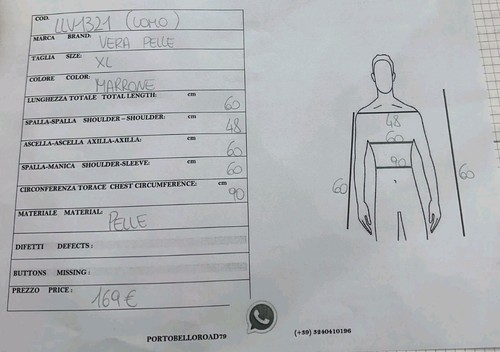 COD. LLV1321 (UOMO)
MARCA BRAND: VERA PELLE
TAGLIA SIZE: XL
COLORE COLOR: MARRONE
LUNGHEZZA TOTALE TOTAL LENGTH: cm 60
SPALLA-SPALLA SHOULDER-SHOULDER: cm 48
ASCELLA-ASCELLA AXILLA-AXILLA: cm 60
SPALLA-MANICA SHOULDER-SLEEVE: cm 60
CIRCONFERENZA TORACE CHEST CIRCUMFERENCE: cm 90
MATERIALE MATERIAL: PELLE
DIFETTI DEFECTS:
BUTTONS MISSING:
PREZZO PRICE: 169€
48
60
90
60
60
PORTOBELLOROAD79
(+39) 3240410196